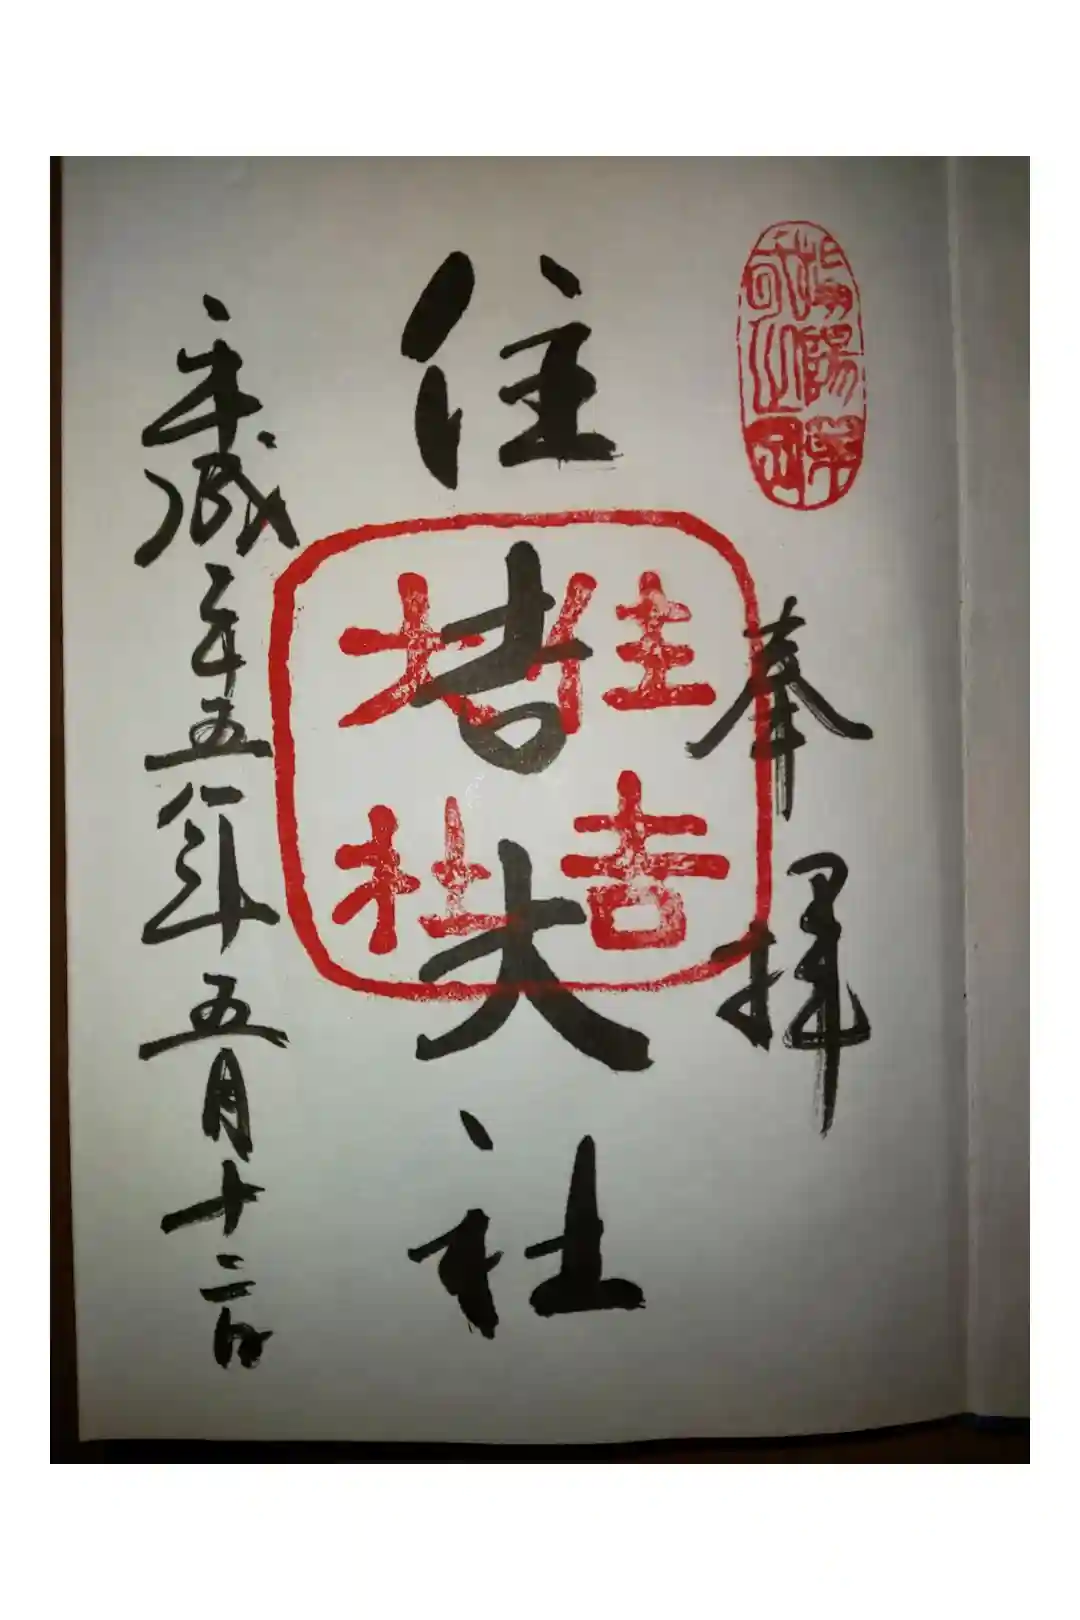 奉拝
住吉大社
住吉
大社
平成二十五年五月十二日